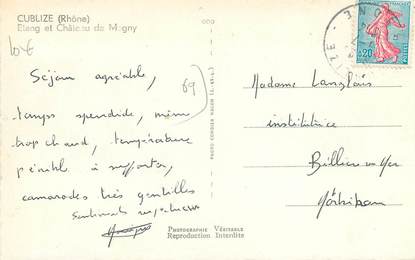 CUBLIZE (Rhône)
Etang et Château de Magny
Séjour agréable,
69
temps splendide, même
trop chaud, température
pénible à supporter,
camarades très gentilles
Sentiments respectueux
PHOTOGRAPHIE VÉRITABLE
Reproduction Interdite
0,20
Madame Langlais
institutrice
Billiers sur Mer
Morbihan